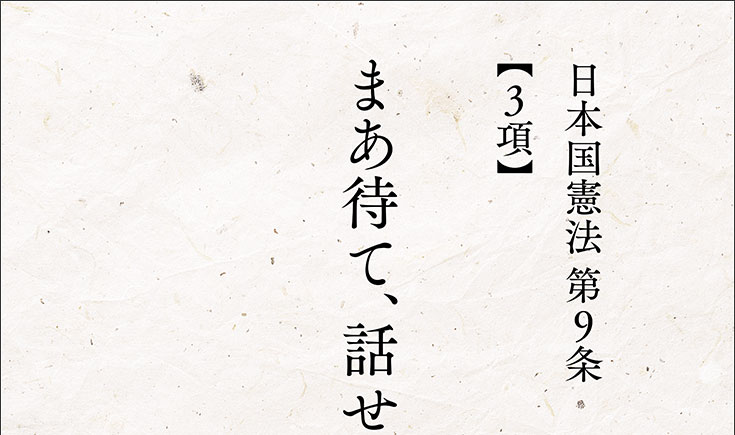 日本国憲法 第9条
【3項】
まあ待て、話せ